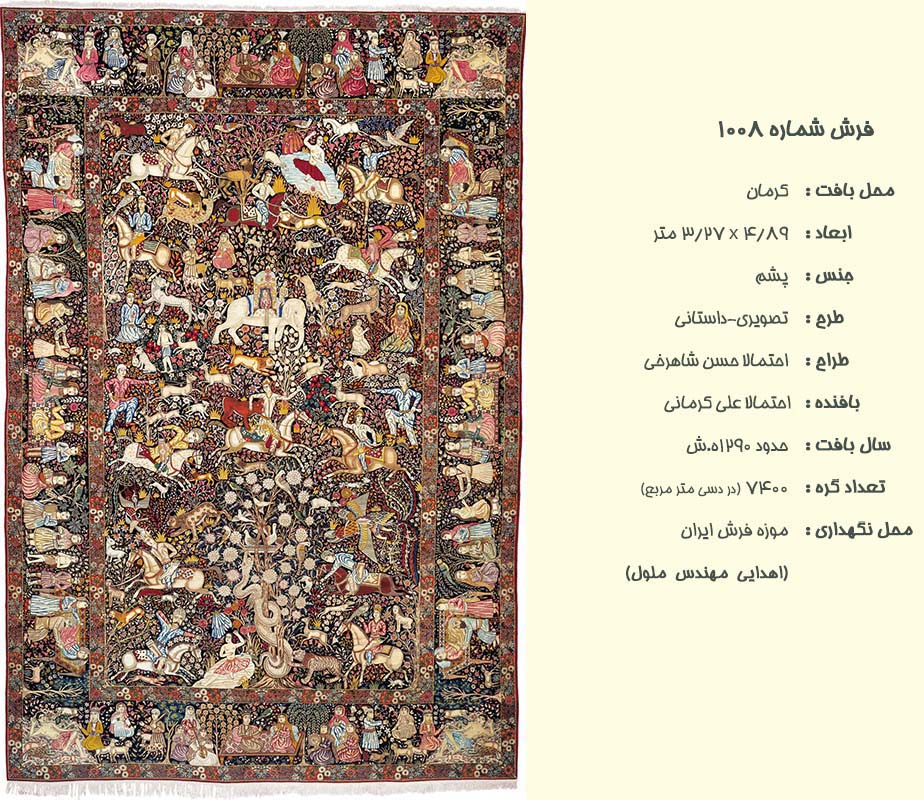 فرش شماره ۱۰۰۸
محل بافت : کرمان
ابعاد : ۴/۸۹ x ۳/۲۷ متر
جنس : پشم
طرح : تصویری-داستانی
طراح : احتمالا حسن شاهرخی
بافنده : احتمالا علی کرمانی
سال بافت : حدود ۱۲۹۰ه.ش
تعداد گره : ۷۴۰۰ (در دسی متر مربع)
محل نگهداری : موزه فرش ایران
(اهدایی مهندس ملول)